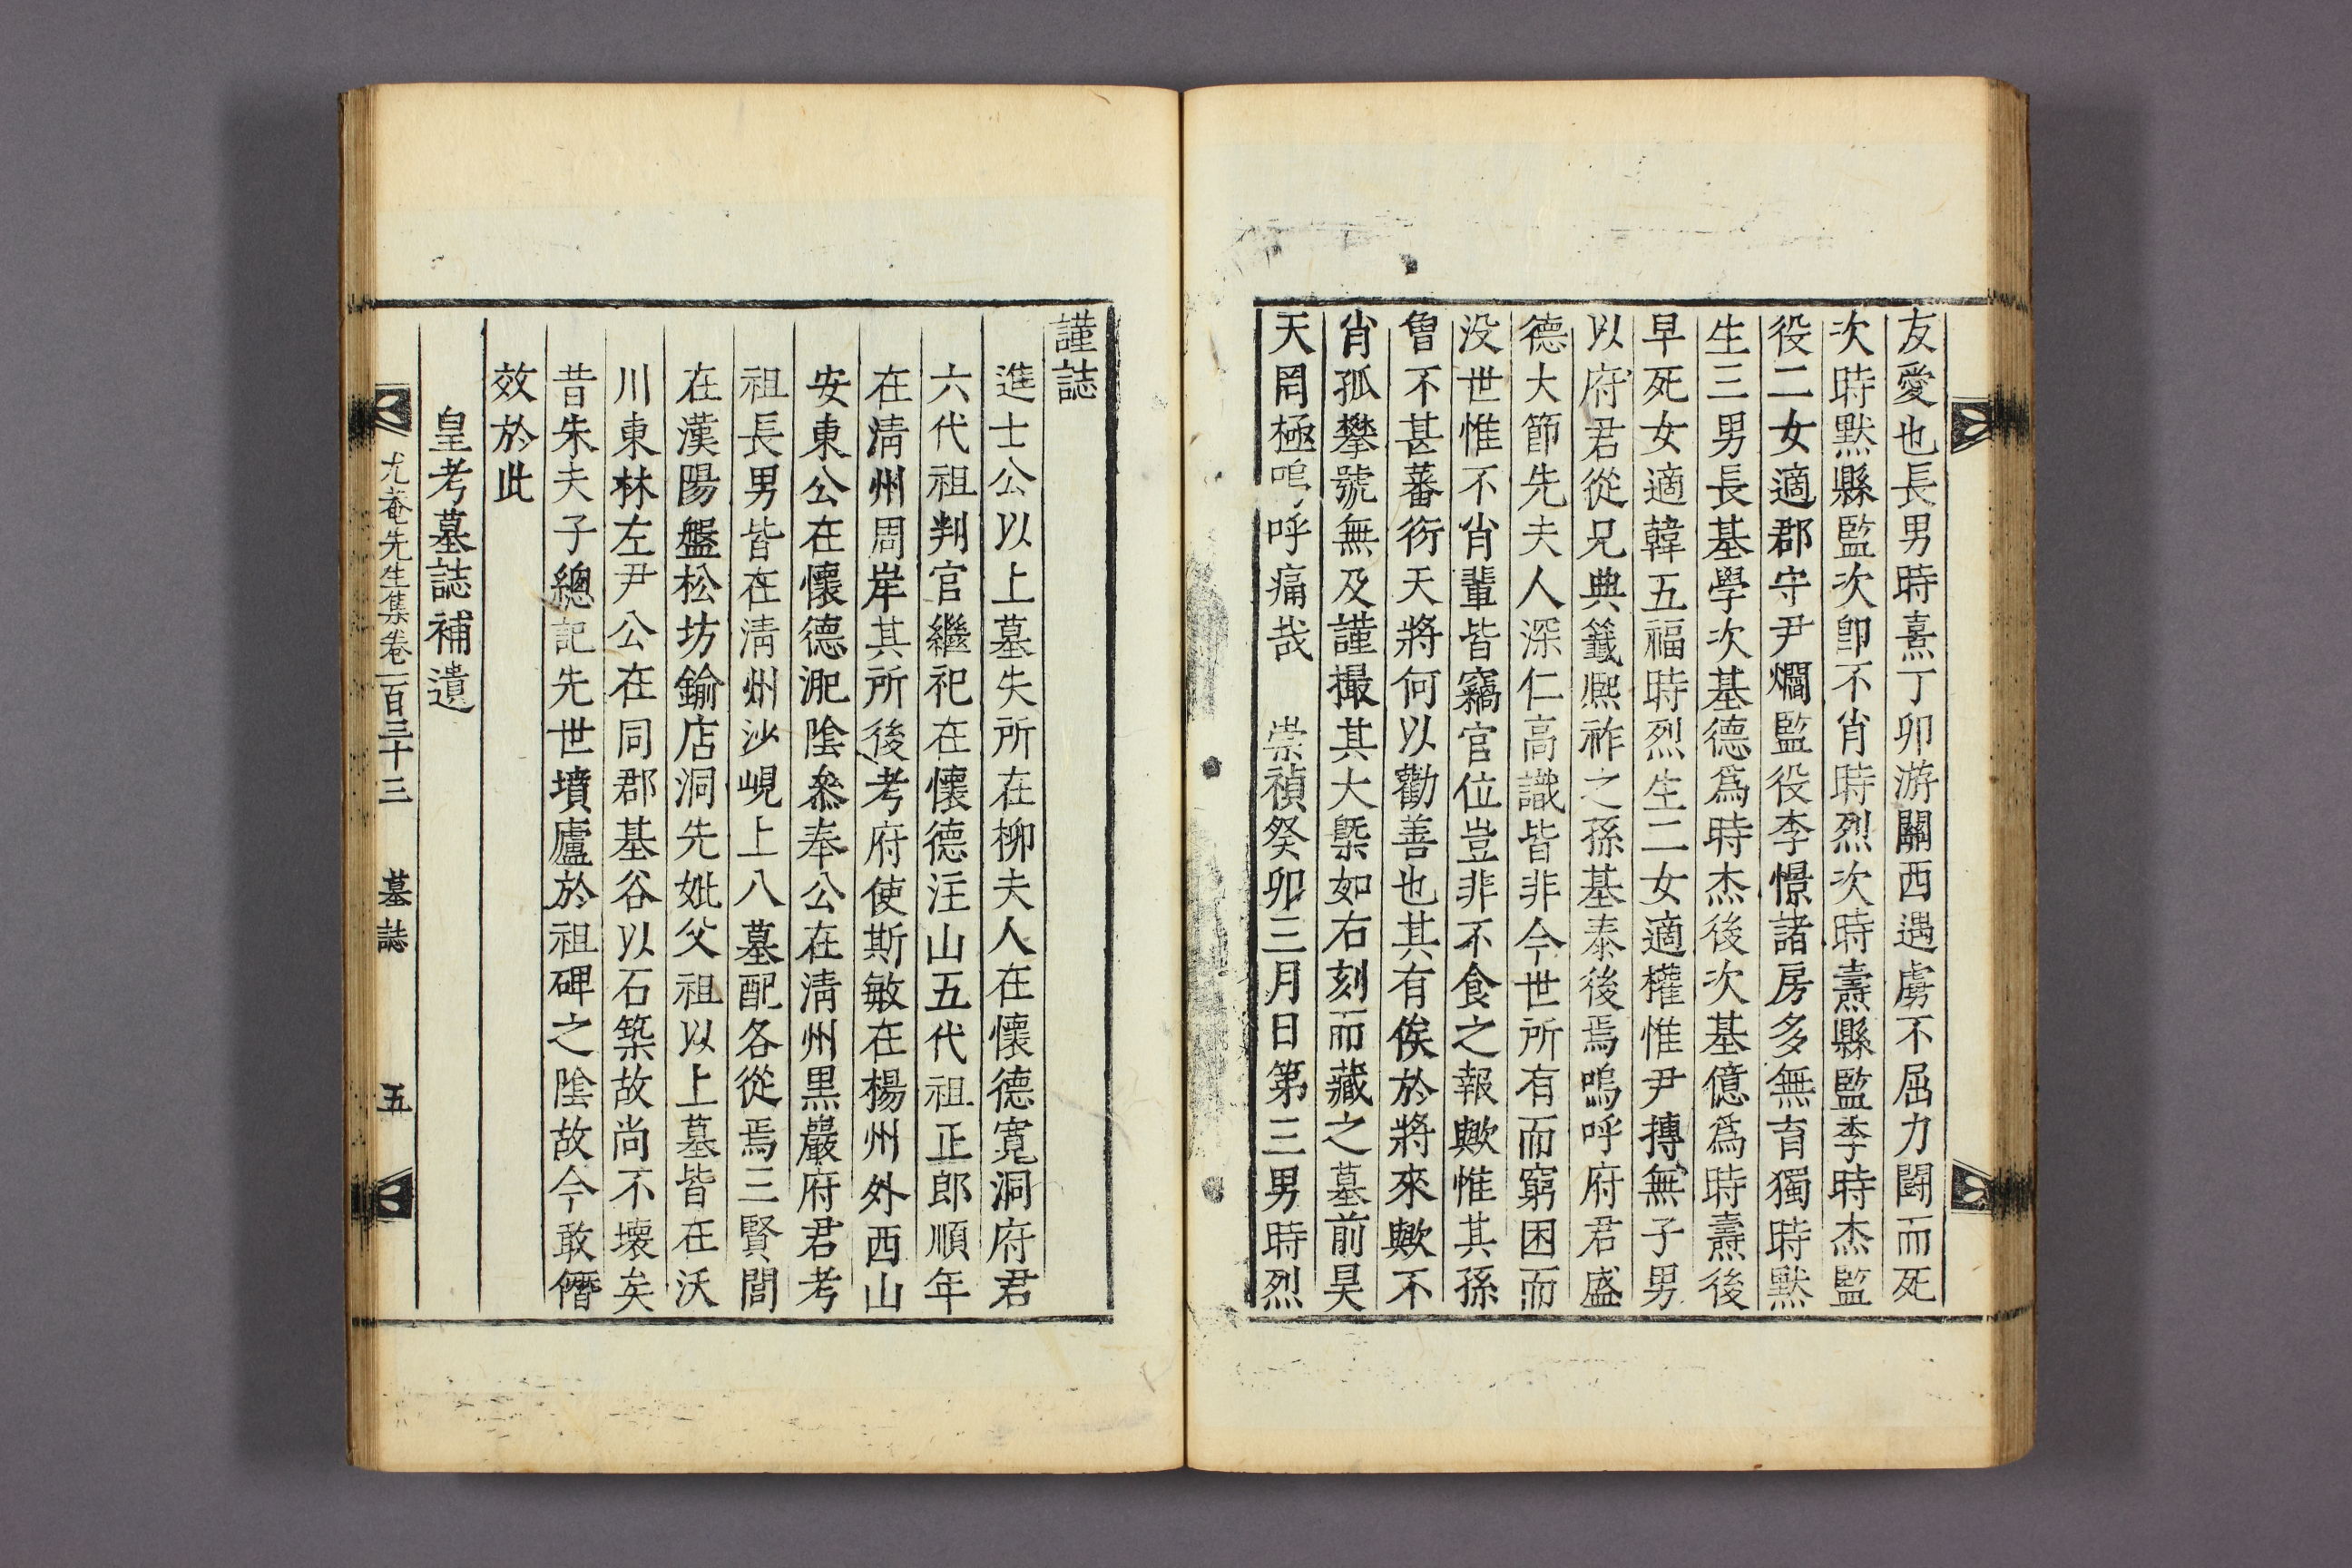 友愛也長男時熹丁卯游關西遇虜不屈力鬪而死
次時默縣監次卽不肖時烈次時燾縣監季時杰監
役二女適郡守尹爓監役李憬諸房多無育獨時默
生三男長基學次基德爲時杰後次基億爲時燾後
早死女適韓五福時烈生二女適權惟尹摶無子男
以府君從兄典籤熙祚之孫基泰後焉嗚呼府君盛
德大節先夫人深仁高識皆非今世所有而窮困而
没世惟不肖輩皆竊官位豈非不食之報歟惟其孫
曾不甚蕃衍天將何以勸善也其有俟於將來歟不
肖孤攀號無及謹撮其大槩如右刻而藏之墓前昊
天罔極嗚呼痛哉 崇禎癸卯三月日第三男時烈
謹誌
進士公以上墓失所在柳夫人在懷德寬洞府君
六代祖判官繼祀在懷德注山五代祖正郎順年
在淸州周岸其所後考府使斯敏在楊州外西山
安東公在懷德淝陰叅奉公在淸州黑巖府君考
祖長男皆在淸州沙峴上八墓配各從焉三賢閭
在漢陽盤松坊鍮店洞先妣父祖以上墓皆在沃
川東林左尹公在同郡基谷以石築故尚不壞矣
昔朱夫子總記先世墳廬於祖碑之陰故今敢僭
效於此
皇考墓誌補遺
尤菴先生集卷一百八十三 墓誌 五